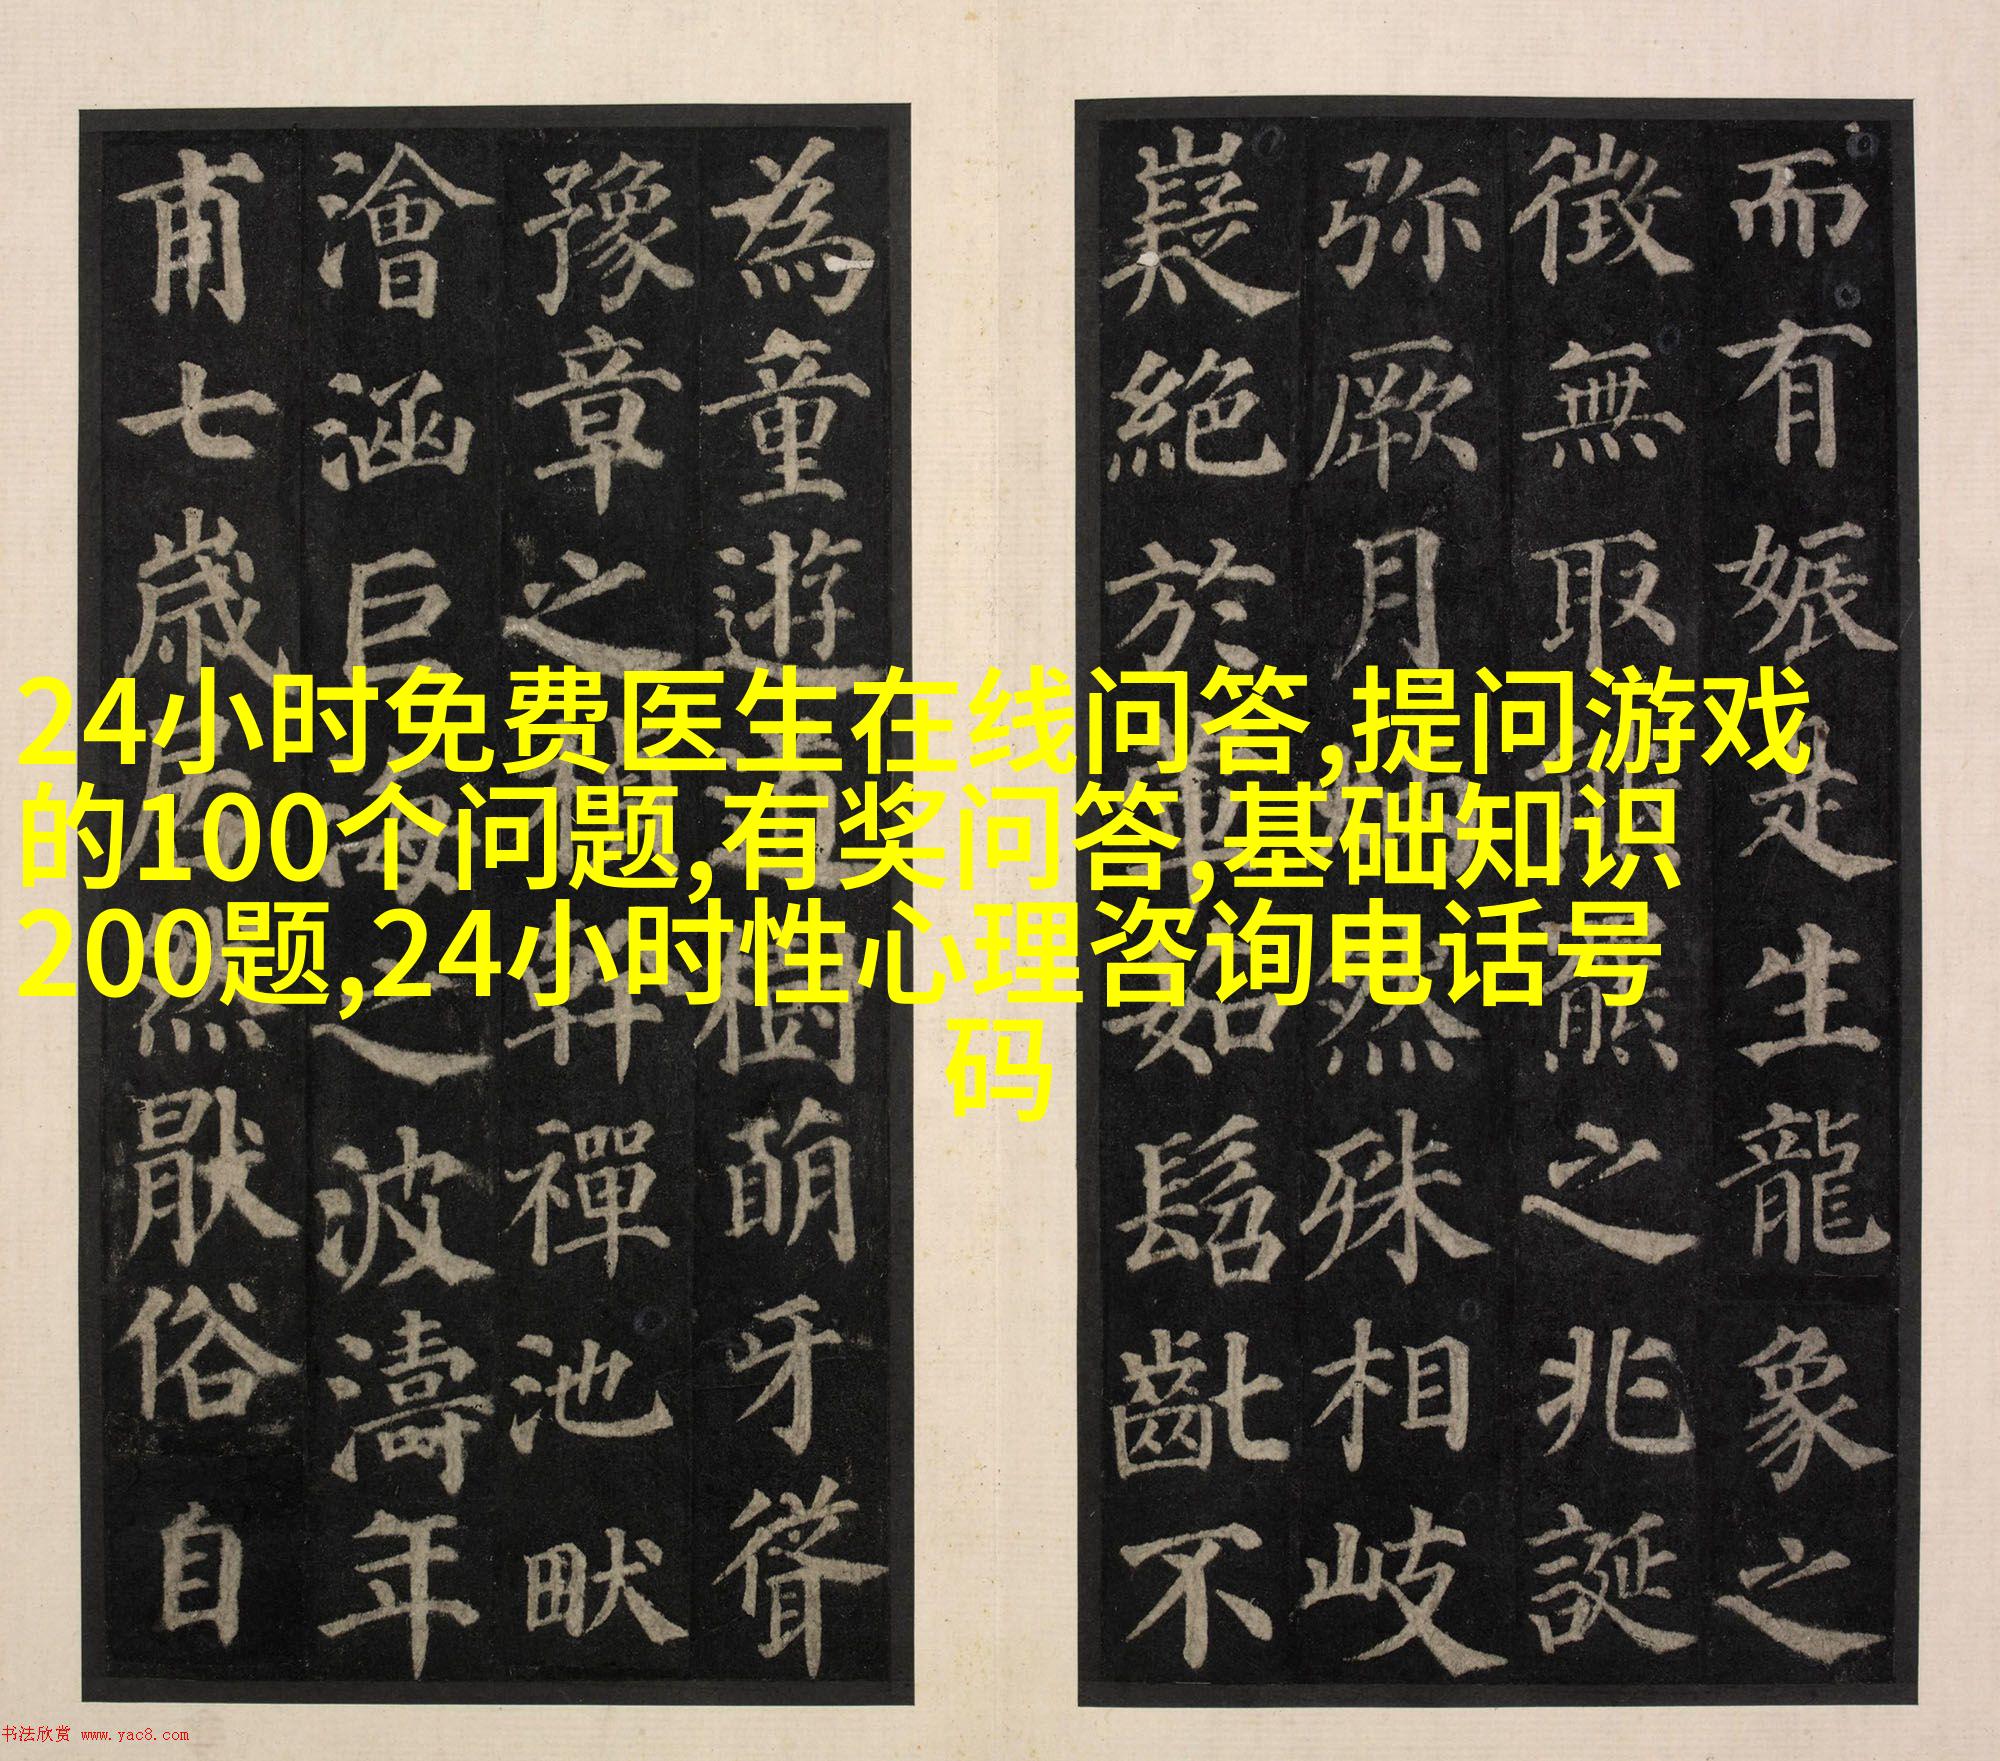 而有娠是生龍象之
徵無取羆之兆誕
弥厥月然殊相岐
嶷絕於葷茹髫齔不
為童遊道樹萌牙聳
豫章之楨幹禪池畎
澮涵巨海之波濤年
甫七歲居然厭俗自
24小时免费医生在线问答,提问游戏
的100个问题,有奖问答,基础知识
200题,24小时性心理咨询电话号
码
书法欣赏 www.yac8.com